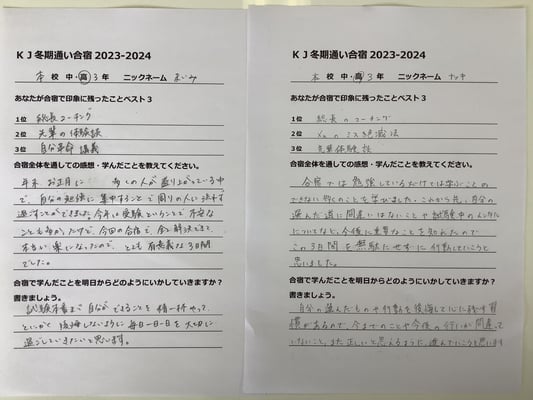 KJ冬期通い合宿 2023-2024
本 校 中・高 3 年 ニックネーム まいみ
あなたが合宿で印象に残ったことベスト3
1位 総長コーチング
2位 先輩の体験談
3位 自分革命 講義
合宿全体を通しての感想・学んだことを教えてください。
年末 お正月に 多くの人が盛り上がっている中
で、自分の勉強に集中することで周りの人に決す
過ごすことができました。今年、受験ということで不安な
ことも多かったけど、今回の合宿で、全て解決できて
本当に楽になったので、とても有意義な3日間
でした。
合宿で学んだことを明日からどのようにいかしていきますか？
書きましょう。
試験本番まで自分ができることを精一杯やって、
後悔しないように毎日一日一日を大切に
過ごしていきたいと思います。
KJ冬期通い合宿 2023-2024
本 校 中・高 3 年 ニックネーム ナッキ
あなたが合宿で印象に残ったことベスト3
1位 総長のコーチング
2位 のミス絶滅法
3位 先輩体験談
合宿全体を通しての感想・学んだことを教えてください。
合宿では勉強しているだけでは学ぶことの
できない多くのことを学びました。これから先、自分の
選んだ道に間違いはないことや試験中のメンタルに
についてなど、今後に重要なことを知れたので
この3日間を無駄にせずに行動していこうと
思いました。
合宿で学んだことを明日からどのようにいかしていきますか？
書きましょう。
自分の選んだものや行動を後悔して心に残す習
慣があるので、今までのことや今後の行いが間違って
いないこと、また正しいと思えるように、進んでいこうと思います